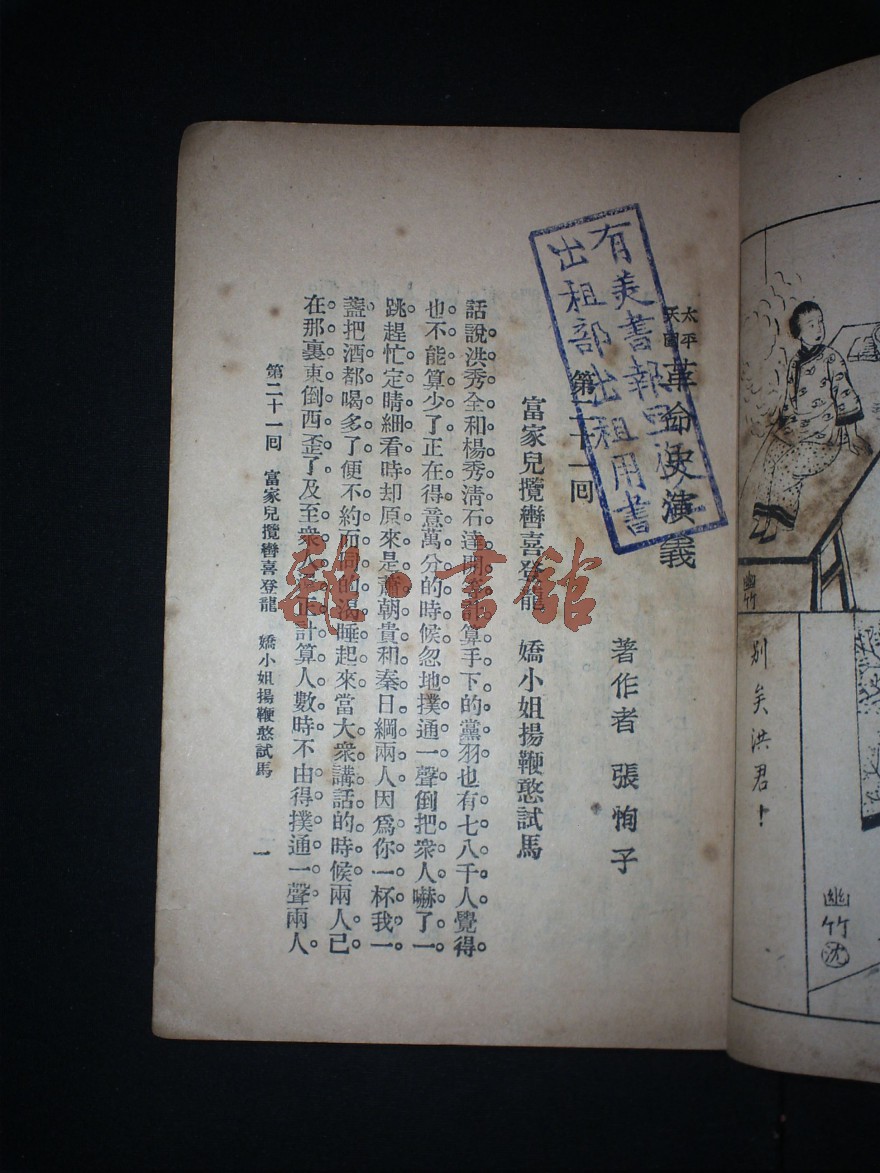 太平
天國
革命史演義
第二十一回
著作者 張恂子
富家兒攬轡喜登龍 嬌小姐揚鞭憨試馬
話說洪秀全和楊秀清石達開等計算手下的黨羽也有七八千人覺得
也不能算少了正在得意萬分的時候忽地撲通一聲倒把衆人嚇了一
跳趕忙定睛細看時却原來是蕭朝貴和秦日綱兩人因爲你一杯我一
盞把酒都喝多了便不約而同的渴睡起來當大衆講話的時候兩人已
在那裏東倒西歪了及至衆人正計算人數時不由得撲通一聲兩人
第二十一回 富家兒攬轡喜登龍 嬌小姐揚鞭憨試馬
一
有美書報
出租部出租用書
雜·書館
幽竹
別矣洪君！
幽竹
沈